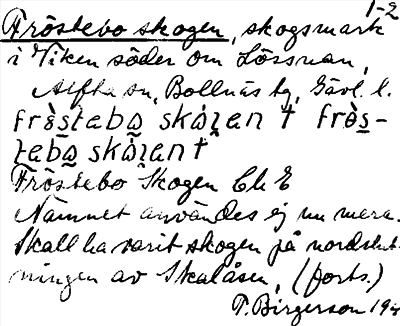 1-2
Fröstebo skogen, skogsmark
i Viken söder om Lössnan,
Alfta sn, Bollnäs tg, Gävl. l.
Fröstebo Skogen Ck E
Namnet användes ej nu mera.
Skall ha varit skogen på nordslut-
ningen av Skalåsen, (forts.)
T. Birgerson 194